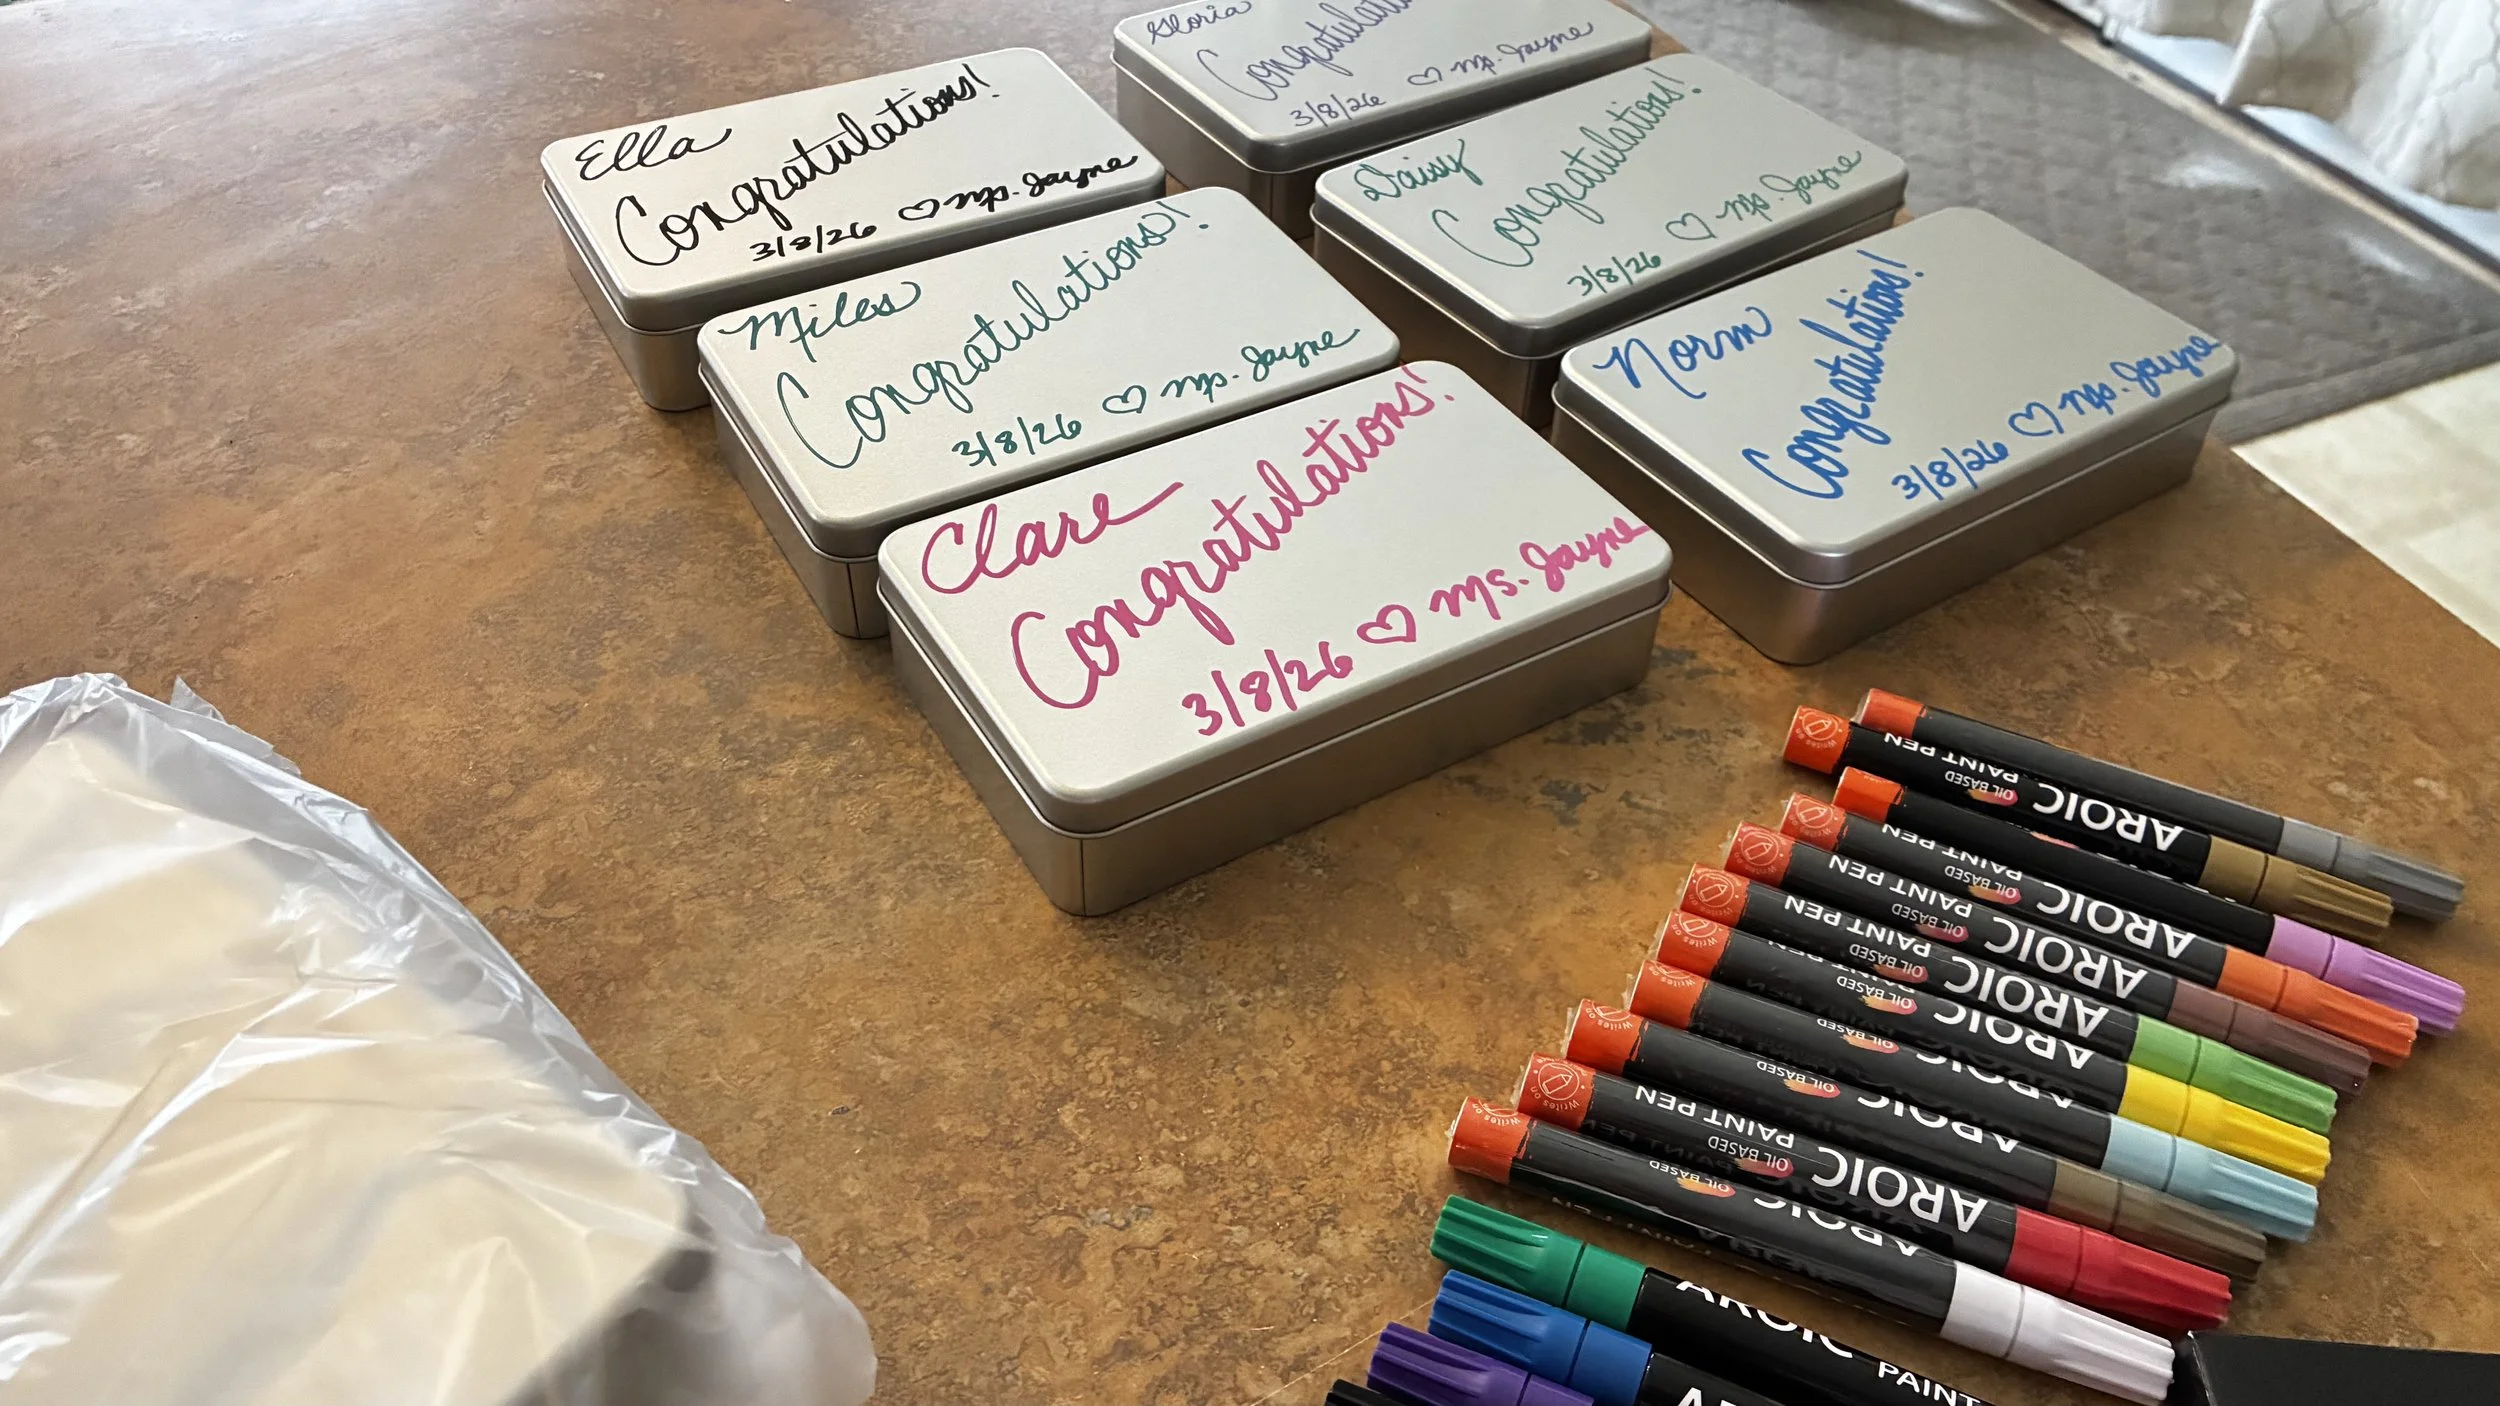 Ella
Congratulations!
3/8/26 ♡ Ms. Jayne
Gloria
Congratulations
3/8/26 ♡ Ms. Jayne
Miles
Congratulations!
3/8/26 ♡ Ms. Jayne
Daisy
Congratulations!
3/8/26 ♡ Ms. Jayne
Clare
Congratulations!
3/8/26 ♡ Ms. Jayne
Norm
Congratulations!
3/8/26 ♡ Ms. Jayne
AROIC OIL BASED PAINT PEN
AROIC OIL BASED PAINT PEN
AROIC OIL BASED PAINT PEN
AROIC OIL BASED PAINT PEN
AROIC OIL BASED
AROIC OIL BASED
AROIC OIL BASED
AROIC OIL BASED PAINT PEN
Writes on
AROIC OIL BASED
AROIC PAINT